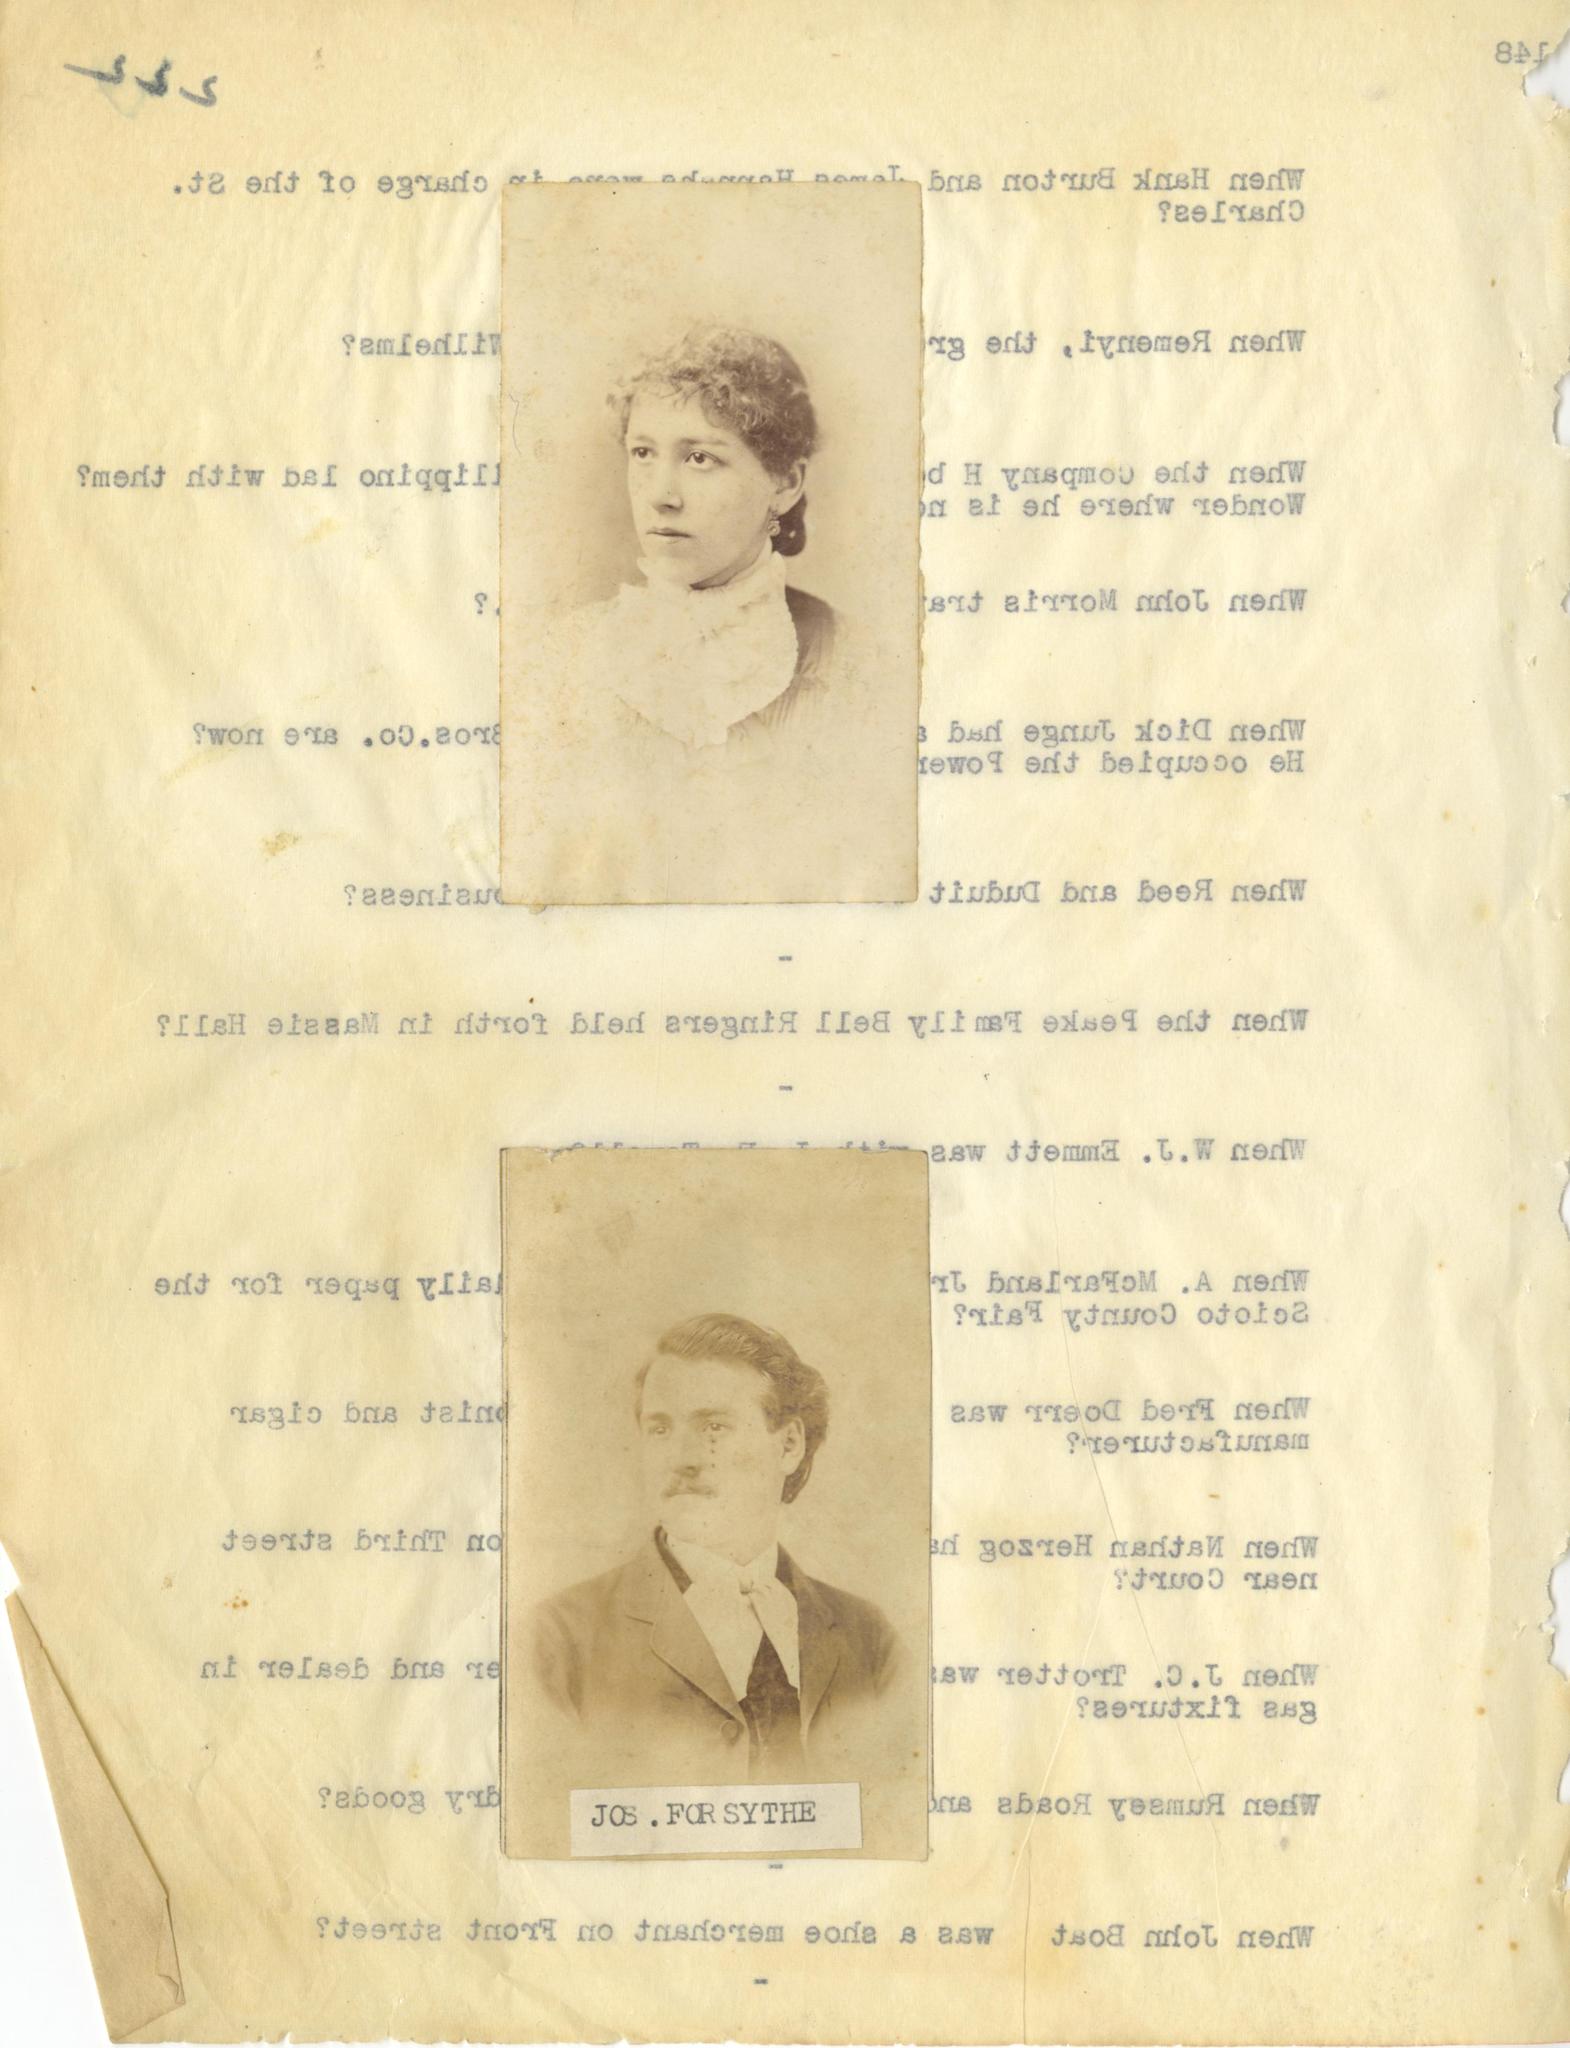 148
222
When Hank Burton and James Hannahs were in charge of the St.
Charles?
When Remenyi, the Wilhelms?
When the Company H lippino lad with them?
Wonder where he is
When John Morris
When Dick Junge had Bros.Co. are now?
He occupied the
When Reed and Duduit business?
-
When the Peake Family Bell Ringers held forth in Massie Hall?
-
When W.J. Emmett was
When A. McFarland Jr daily paper for the
Scioto County Fair?
When Fred Doerr was and cigar
manufacturer?
When Nathan Herzog on Third street
near Court?
When J.C. Trotter was and dealer in
gas fixtures?
When Rumsey Roads and dry goods?
JOS. FORSYTHE
-
When John Boat was a shoe merchant on Front street?
-